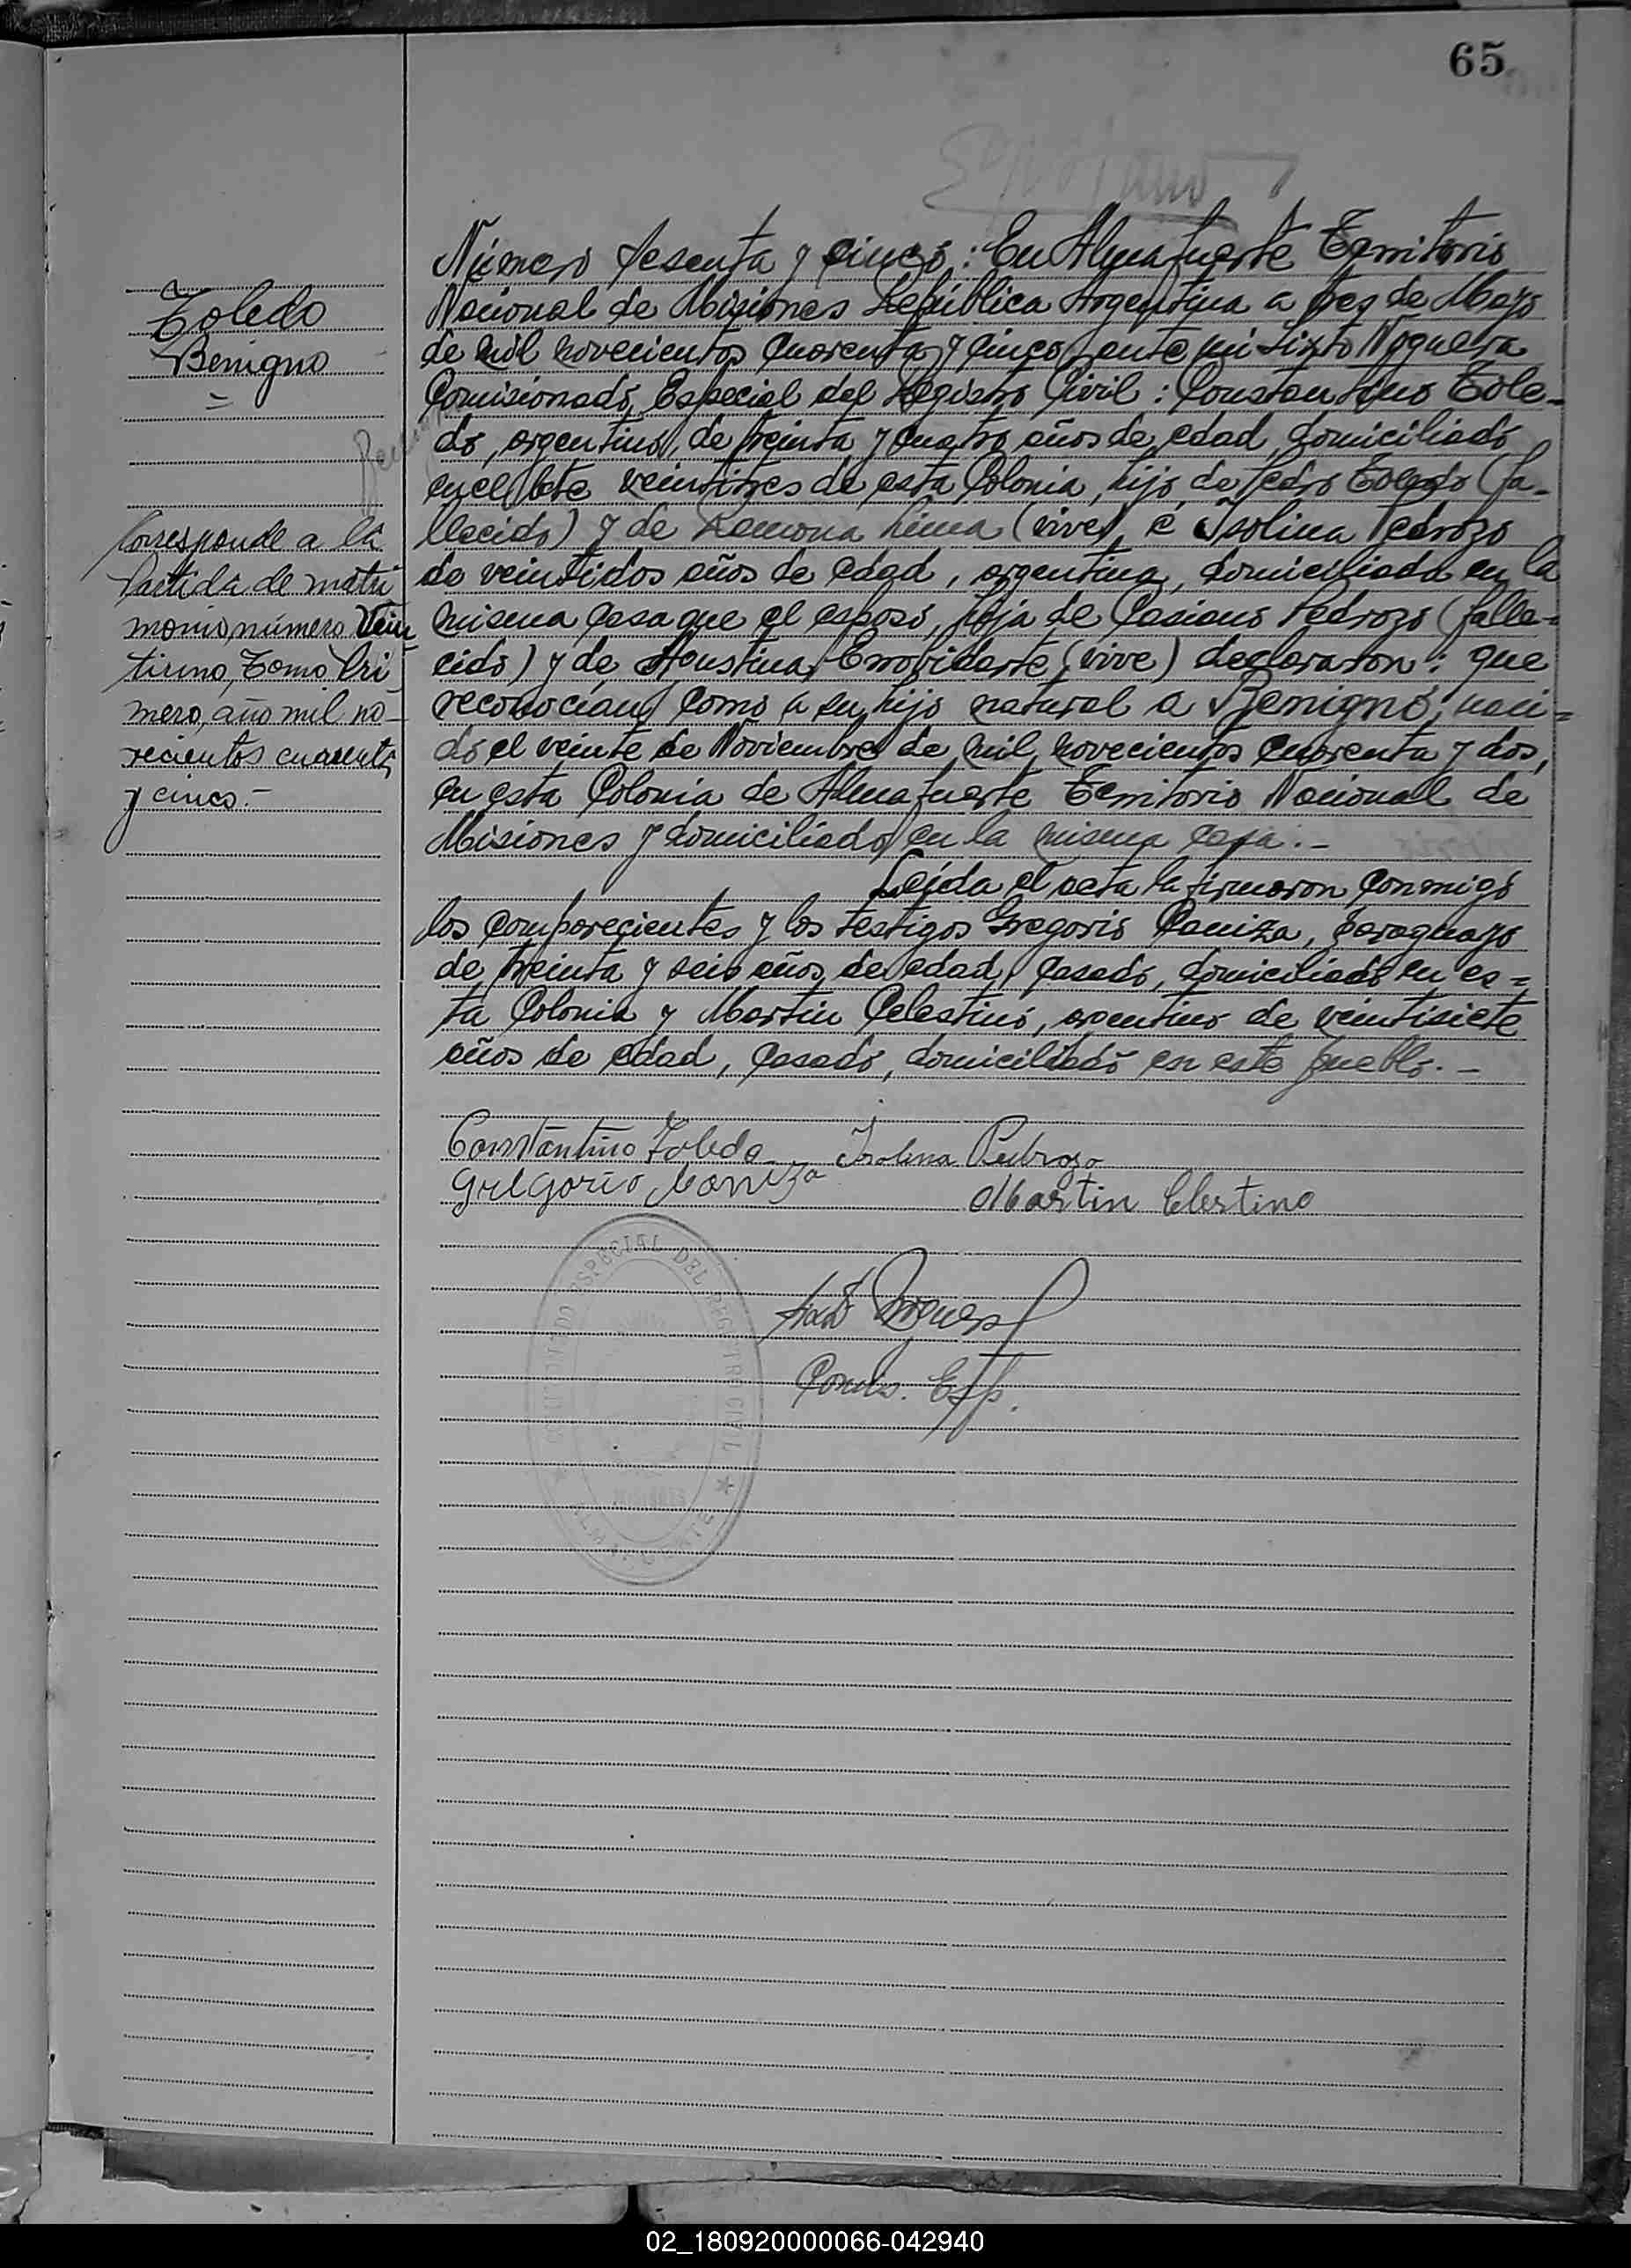 65
Toledo
Benigno
=
Corresponde a la
Partida de matri
monio número Vein
tiuno, Tomo Pri
mero, año mil no-
vecientos cuarenta
y cinco.-
Número sesenta y cinco: En Almafuerte Territorio
Nacional de Misiones República Argentina a tres de Mayo
de mil novecientos cuarenta y cinco, ante mi Sixto Noguera
Comisionado Especial del Registro Civil: Constantino Tole-
do, argentino, de treinta y cuatro años de edad, domiciliado
en el lote veintitres de esta Colonia, hijo de Pedro Toledo (fa-
llecido) y de Ramona Lima (vive), é Isolina Pedrozo
de veintidos años de edad, argentina, domiciliada en la
misma casa que el esposo, hija de Casiano Pedrozo (falle-
cido) y de Agustina (vive) declararon: que
reconocian como a su hijo natural a Benigno, naci-
do el veinte de Noviembre de mil novecientos cuarenta y dos,
en esta Colonia de Almafuerte Territorio Nacional de
Misiones y domiciliado en la misma casa.-
Leida el acta la firmaron conmigo
los comparecientes y los testigos Gregorio Caniza, paraguayo
de treinta y seis años de edad, casado, domiciliado en es-
ta Colonia y Martin Celestino, argentino de veintisiete
años de edad, casado, domiciliado en este pueblo.-
Constantino Toledo Isolina Pedrozo
Gregorio Caniza Martin Celestino
Sixto Noguera
Comis. Esp.
COMISIONADO ESPECIAL DEL REGISTRO CIVIL
★ ALMAFUERTE ★
MISIONES
02_180920000066-042940